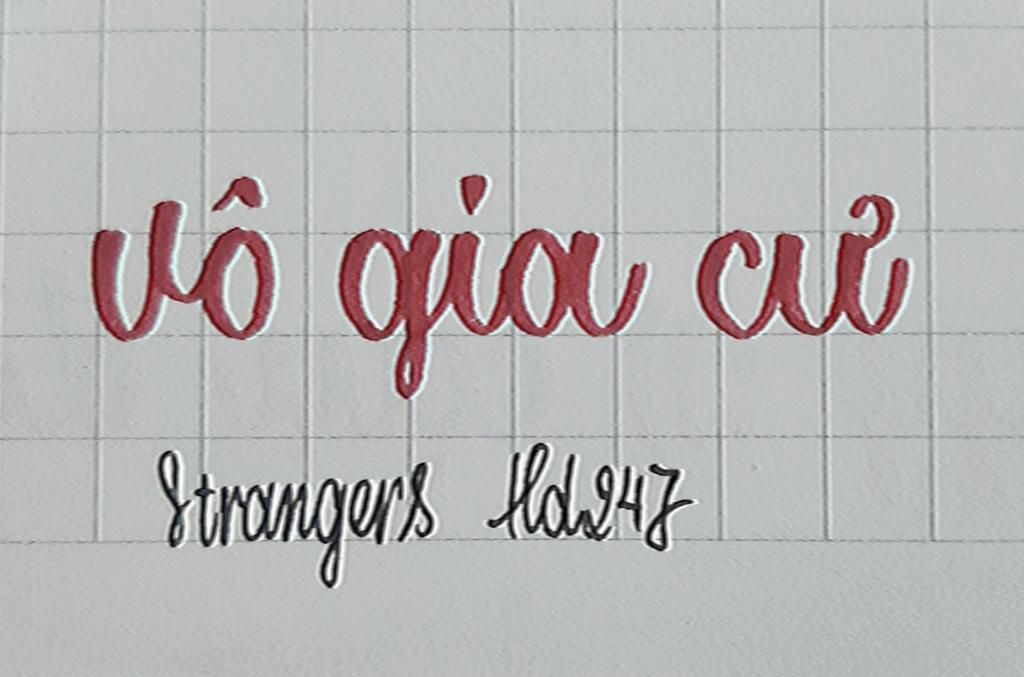 vô gia cử
Strangers Hd247